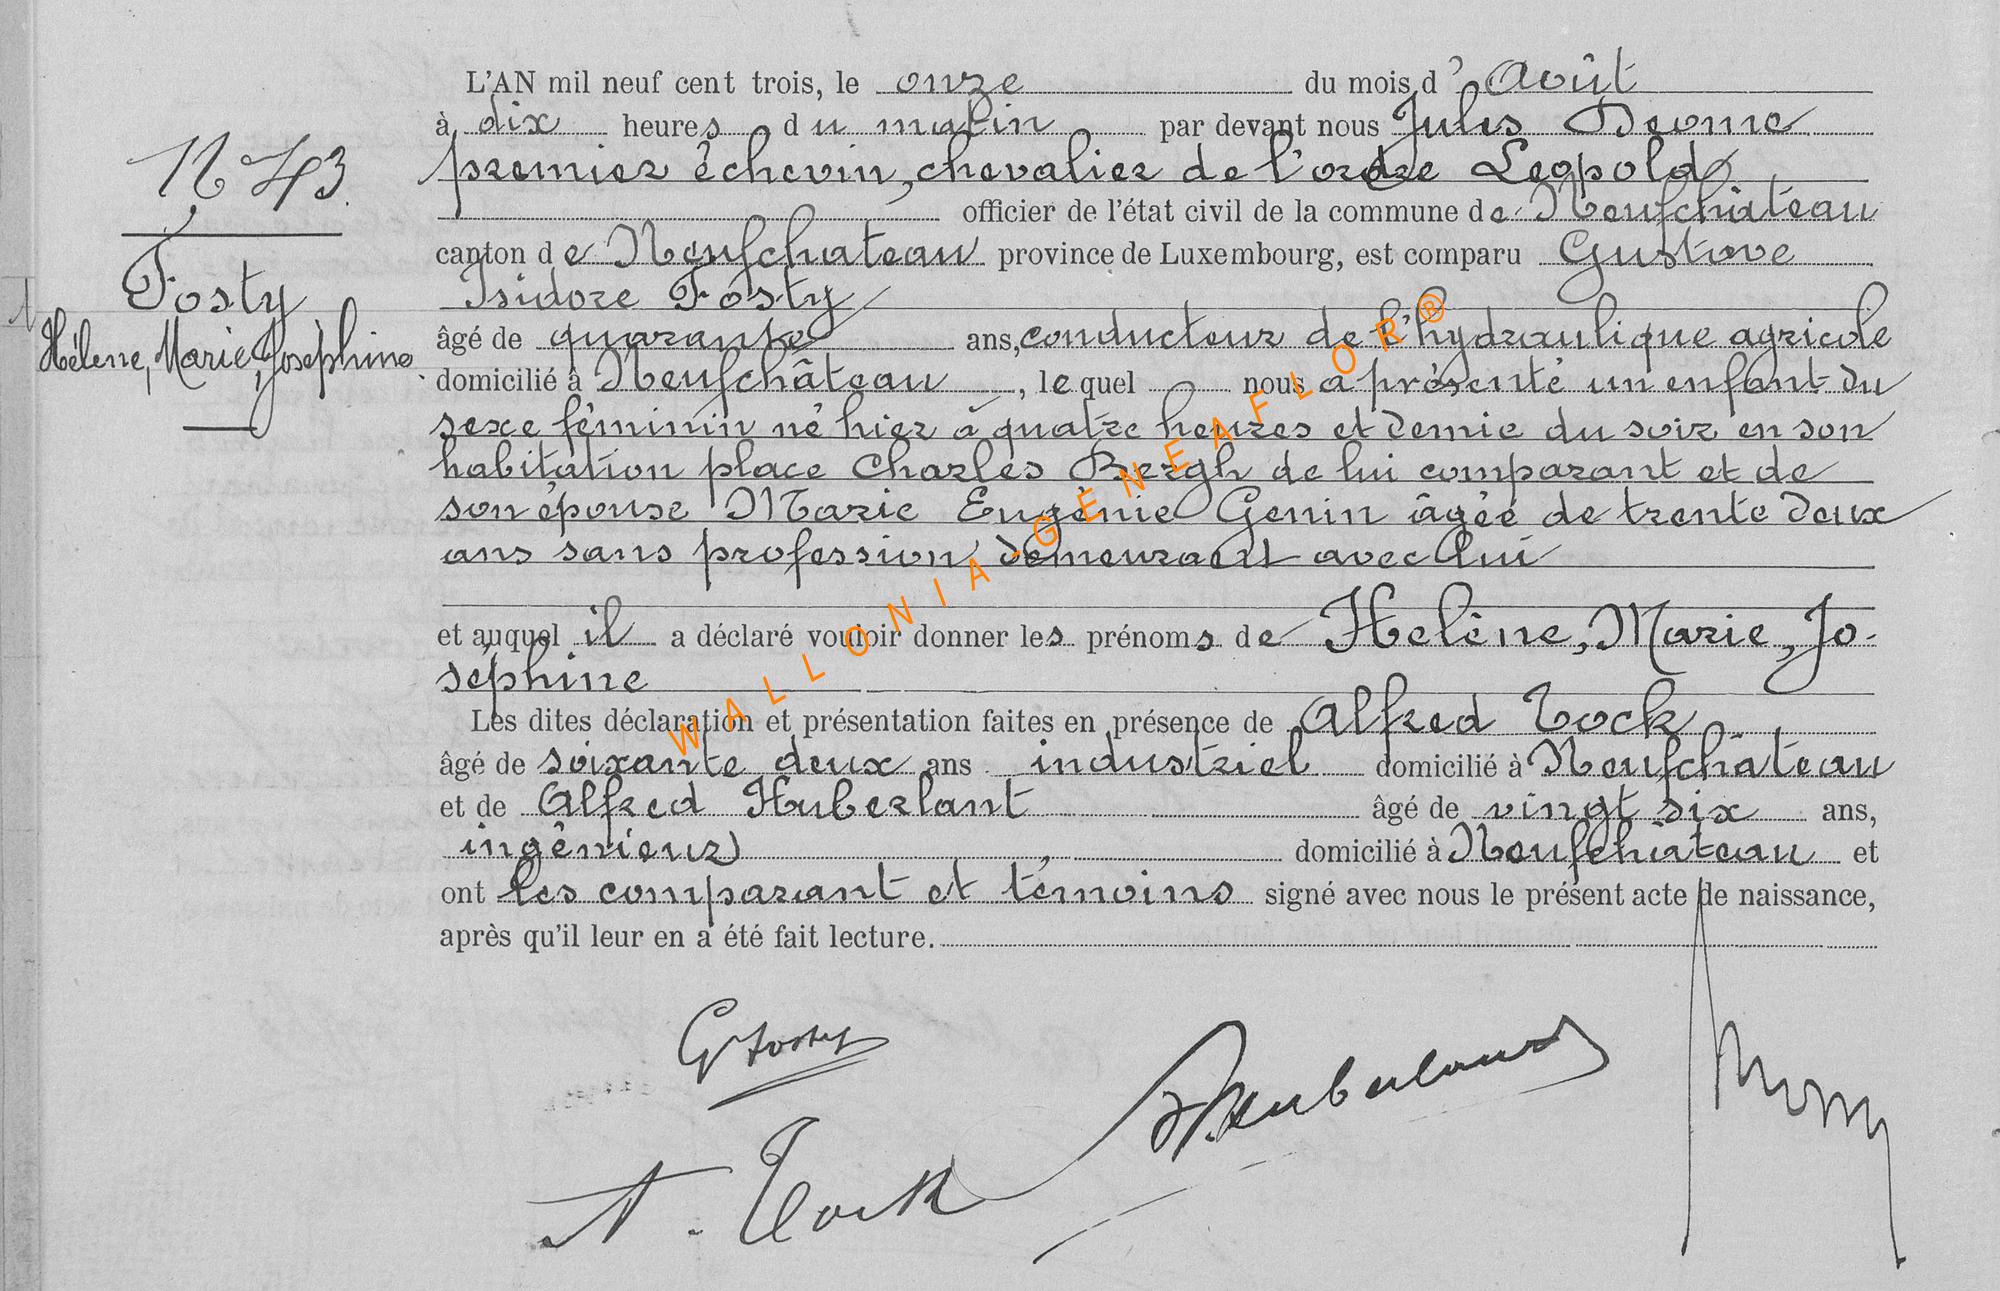 L'AN mil neuf cent trois, le onze du mois d'Août
à dix heures du matin par devant nous Jules
premier échevin, chevalier de l'ordre Leopold
officier de l'état civil de la commune de Neufchâteau
canton de Neufchateau province de Luxembourg, est comparu Gustave
Isidore Fosty
âgé de quarante ans, conducteur de l'hydraulique agricole
domicilié à Neufchâteau, lequel nous a présenté un enfant du
sexe féminin né hier à quatre heures et demie du soir en son
habitation place Charles Bergh de lui comparant et de
son épouse Marie Eugènie Genin âgée de trente deux
ans sans profession demeurant avec lui
et auquel il a déclaré vouloir donner les prénoms de Helène, Marie, Jo-
séphine
Les dites déclaration et présentation faites en présence de Alfred Tock
âgé de soixante deux ans industriel domicilié à Neufchâteau
et de Alfred Huberlant âgé de vingt six ans,
ingénieur domicilié à Neufchâteau et
ont les comparant et témoins signé avec nous le présent acte de naissance,
après qu'il leur en a été fait lecture.
N 43
Fosty
Hélene, Marie, Josèphine
G Fosty
A. Tock
A. Huberlant
WALLONIA-GENEAFLOR®